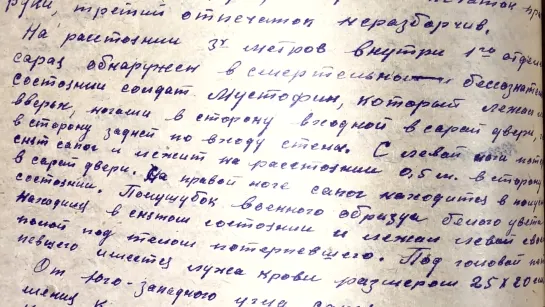 руки, третий отпечаток неразборчив.
На расстоянии 3х метров внутри 1го отдел
сарая обнаружен в смертельно бессознател
состоянии солдат Мустофин, который лежал
вверьх, ногами в сторону входной в сарай двери,
в сторону задней по входу стены. С левой ноги
снят сапог и лежит на расстоянии 0,5 м. в сторону
в сарай двери. На правой ноге сапог находится в
состоянии. Полушубок военного образца белого цвета
находился в снятом состоянии и лежал левой
полой под телом потерпевшего. Под головой
певшего имеется лужа крови размером 25х20 см
От юго-западного угла